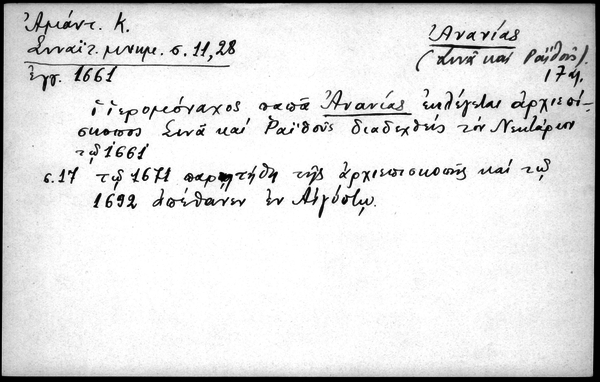 Ἀμάντ. Κ.
Σιναϊτ. μνημ. σ. 11, 28
ἔγγ. 1661
Ἀνανίας
(Σινᾶ καὶ Ῥαϊθοῦ).
17 αἰ.
Ὁ ἱερομόναχος παπᾶ Ἀνανίας ἐκλέγεται ἀρχιεπί-
σκοπος Σινᾶ καὶ Ῥαϊθοῦς διαδεχθεὶς τὸν Νεκτάριον
τῷ 1661
σ. 17 τῷ 1671 παρῃτήθη τῆς ἀρχιεπισκοπῆς καὶ τῷ
1692 ἀπέθανεν ἐν Αἰγύπτῳ.